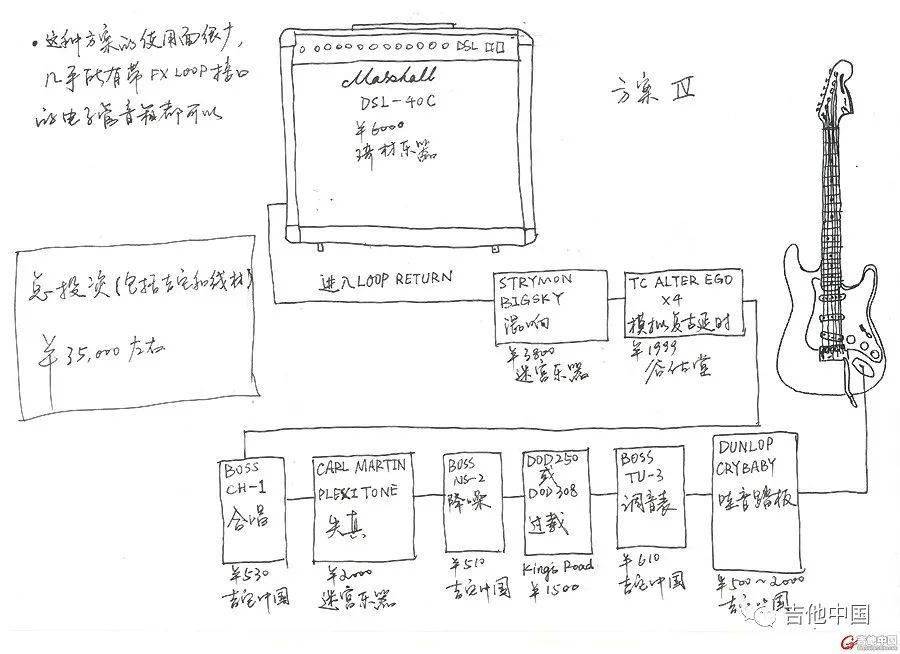 • 这种方案的使用面很广,
几乎所有带 FX LOOP 接口
的电子管音箱都可以
DSL
Marshall
DSL-40C
¥6000
琦材乐器
方案 IV
总投资(包括吉它和线材)
¥35,000 左右
进入LOOP RETURN
STRYMON
BIGSKY
混响
¥3800
迷宫乐器
TC ALTER EGO
X4
模拟复古延时
¥1999
谷仙堂
BOSS
CH-1
合唱
¥530
吉它中国
CARL MARTIN
PLEXITONE
失真
¥2000
迷宫乐器
BOSS
NS-2
降噪
¥510
吉它中国
DOD250
或
DOD308
过载
King's Road
¥1500
BOSS
TU-3
调音表
¥610
吉它中国
DUNLOP
CRYBABY
哇音踏板
¥500~2000
吉它中国
吉他中国
吉他中国